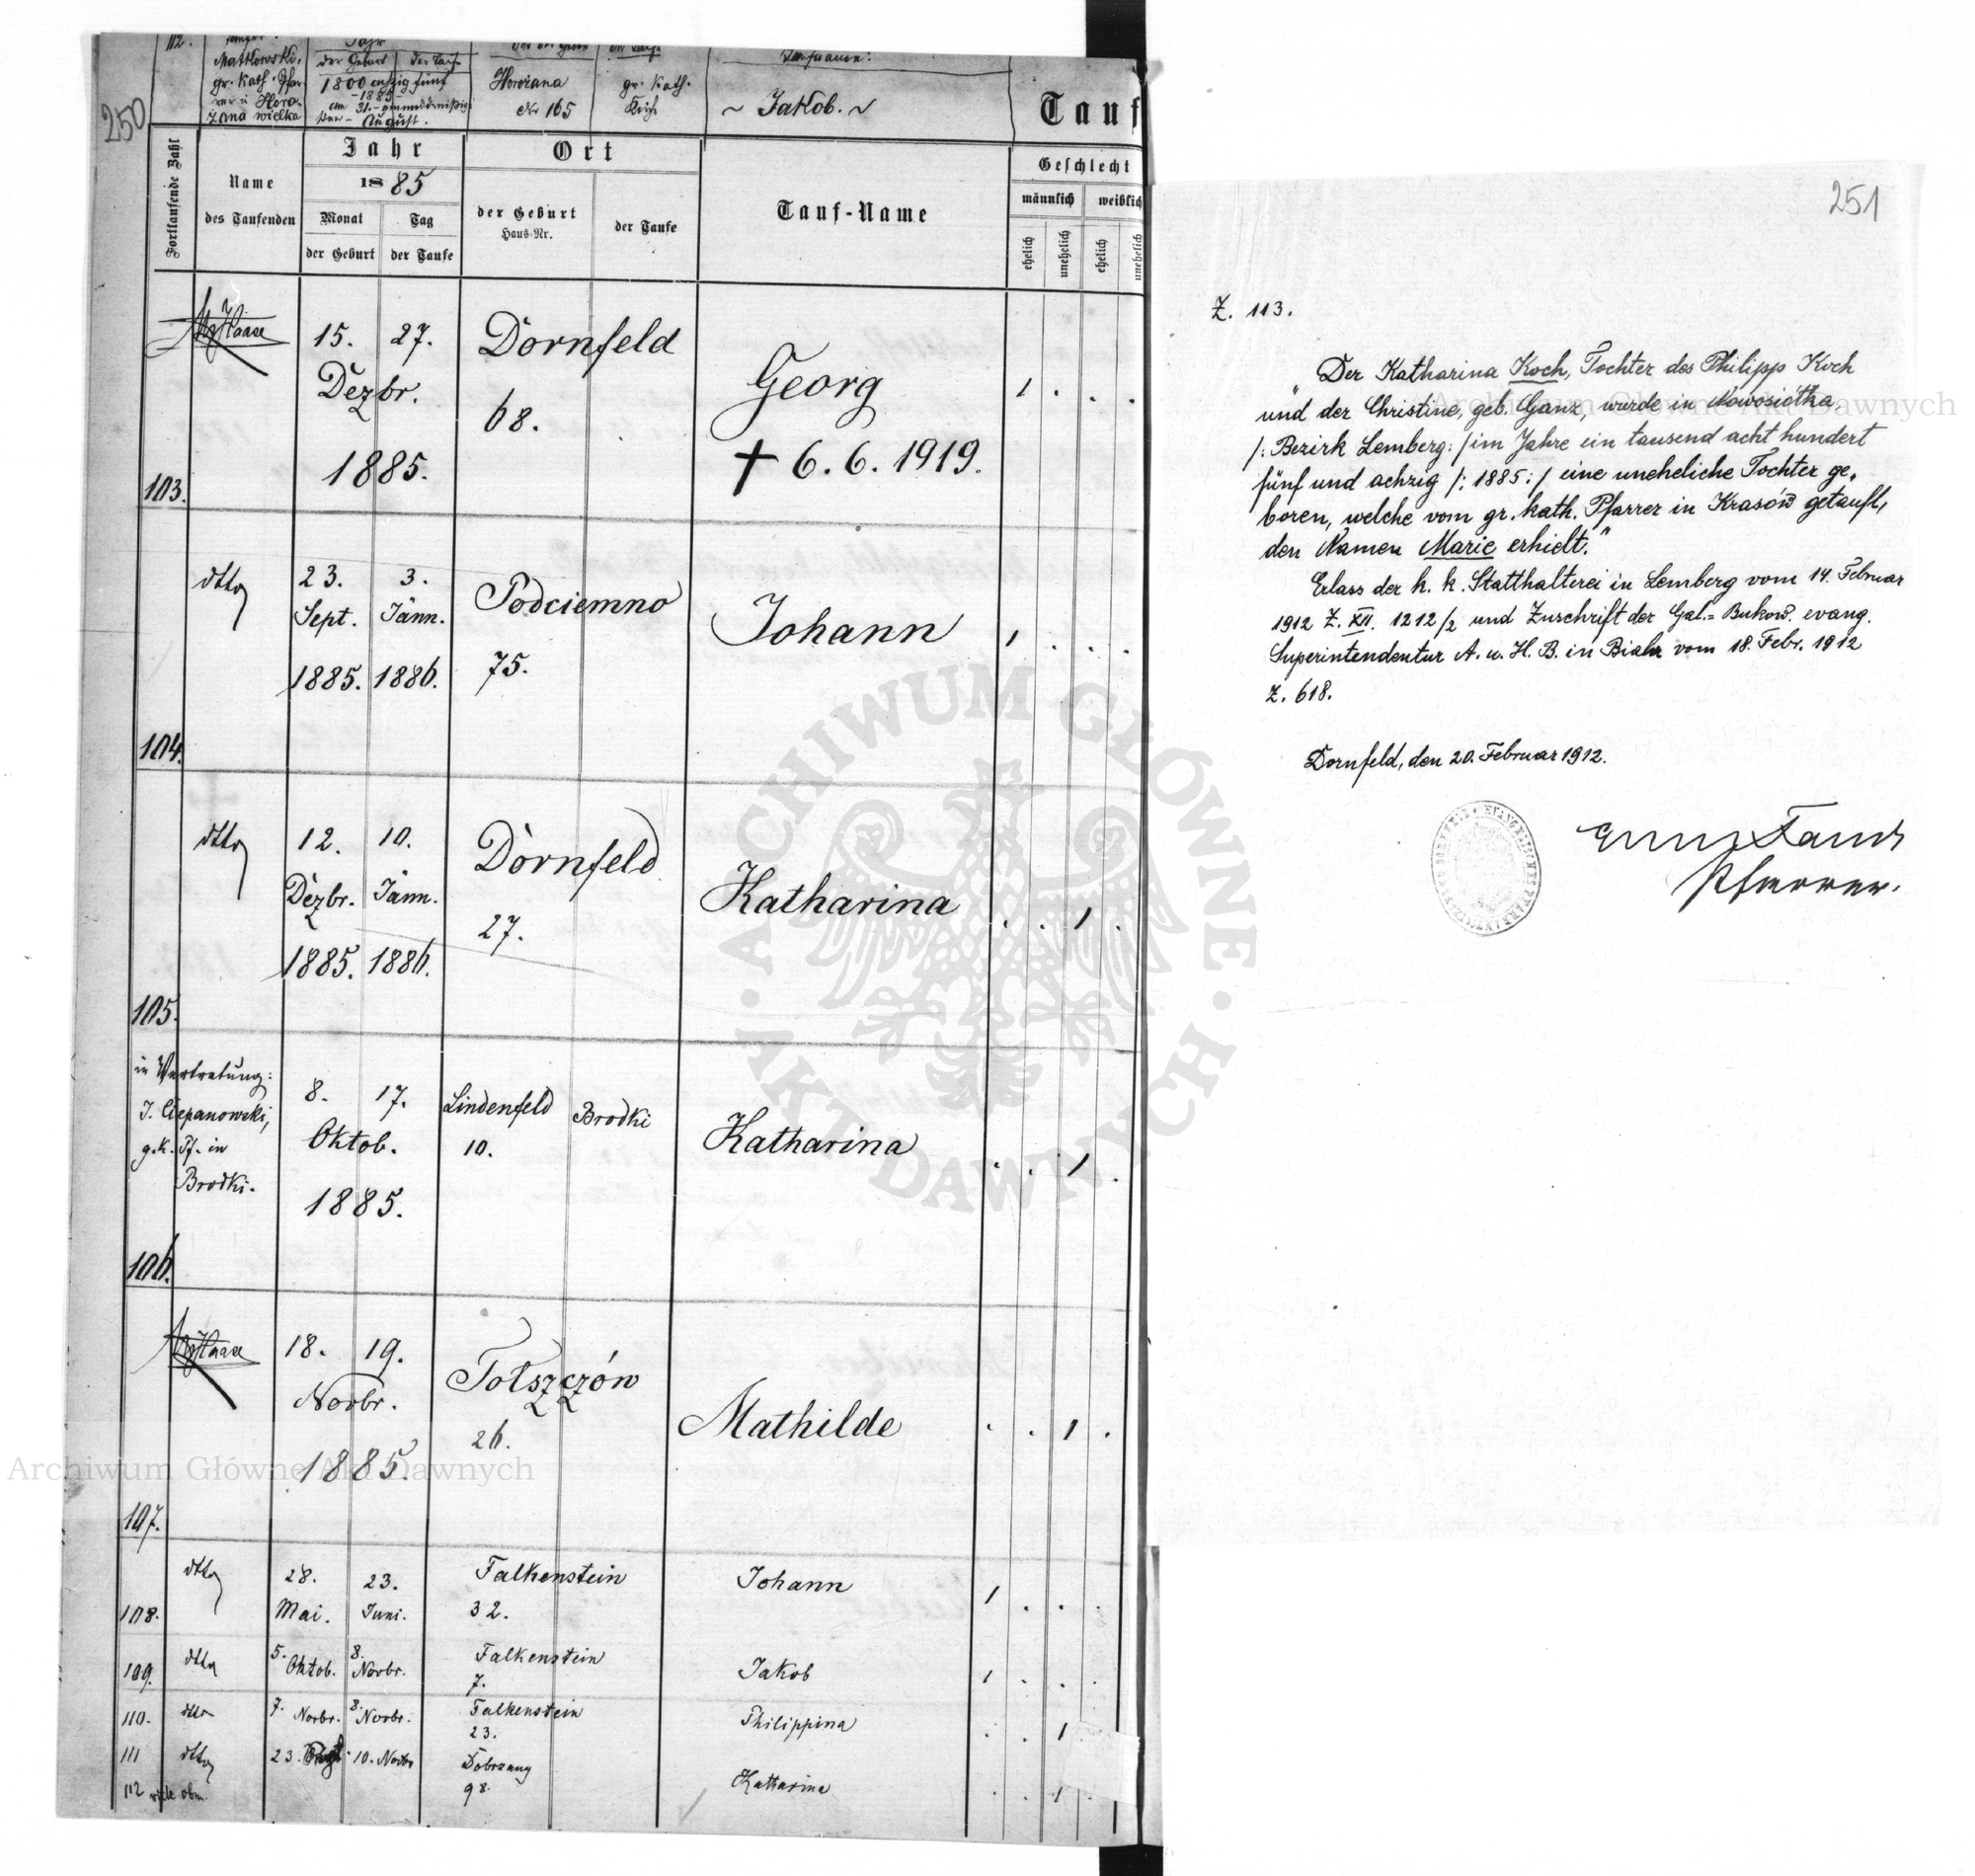 250
112.
Matkowski,
gr. kath. Pfar-
rer in Horo-
żana wielka
Jahr
der Geburt der Taufe
1800 achzig fünf
- 1885 -
am 31. - einunddreißig-
sten - August.
Horożana
No 165
gr. kath.
Kirche
Taufname:
~ Jakob. ~
Tauf
Fortlaufende Zahl
Name
des Taufenden
Jahr
1885
Monat
der Geburt
Tag
der Taufe
Ort
der Geburt
Haus-Nr.
der Taufe
Tauf-Name
Geschlecht
männlich weiblich
ehelich unehelich ehelich unehelich
103.
Haase
15. 27.
Dezbr.
1885.
Dornfeld
68.
Georg
✝ 6. 6. 1919.
1 . . .
104.
dtto
23. 3.
Sept. Jänn.
1885. 1886.
Podciemno
75.
Johann
1 . . .
105.
dtto
12. 10.
Dezbr. Jänn.
1885. 1886.
Dornfeld
27.
Katharina
. . 1 .
106.
in Vertretung:
J. Ciepanowski,
g. k. Pf. in
Brodki.
8. 17.
Oktob.
1885.
Lindenfeld
10.
Brodki
Katharina
. . 1 .
107.
Haase
18. 19.
Novbr.
1885.
Tołszczów
26.
Mathilde
. . 1 .
108.
dtto
28. 23.
Mai. Juni.
Falkenstein
32.
Johann
1 . . .
109.
dtto
5. Oktob. 8. Novbr.
Falkenstein
7.
Jakob
1 . . .
110.
dtto
7. Novbr. 8. Novbr.
Falkenstein
23.
Philippina
. . 1
111
dtto
23. 10. Novbr
Dobrzany
98.
Katharina
. . 1 .
112 vide obm.
251
Z. 113.
„Der Katharina Koch, Tochter des Philipp Koch
und der Christine, geb. Ganz, wurde in Nowosiółka,
/: Bezirk Lemberg: / im Jahre ein tausend acht hundert
fünf und achzig /: 1885 : / eine uneheliche Tochter ge-
boren, welche vom gr. kath. Pfarrer in Krasów getauft,
den Namen Marie erhielt."
Erlass der k. k. Statthalterei in Lemberg vom 14. Februar
1912 Z. XII. 1212/2 und Zuschrift der Gal.= Bukow. evang.
Superintendentur A. u. H. B. in Biala vom 18. Febr. 1912
Z. 618.
Dornfeld, den 20. Februar 1912.
Pfarrer.
Archiwum Główne Akt Dawnych
Archiwum Główne Akt Dawnych
ARCHIWUM GŁÓWNE · AKT DAWNYCH ·